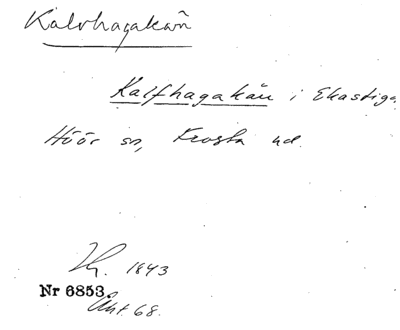 Kalvhagakän
Kalfhagakän i Ekastiga
Höör sn, Frosta hd.
1843
Nr 6853
Akt 68.